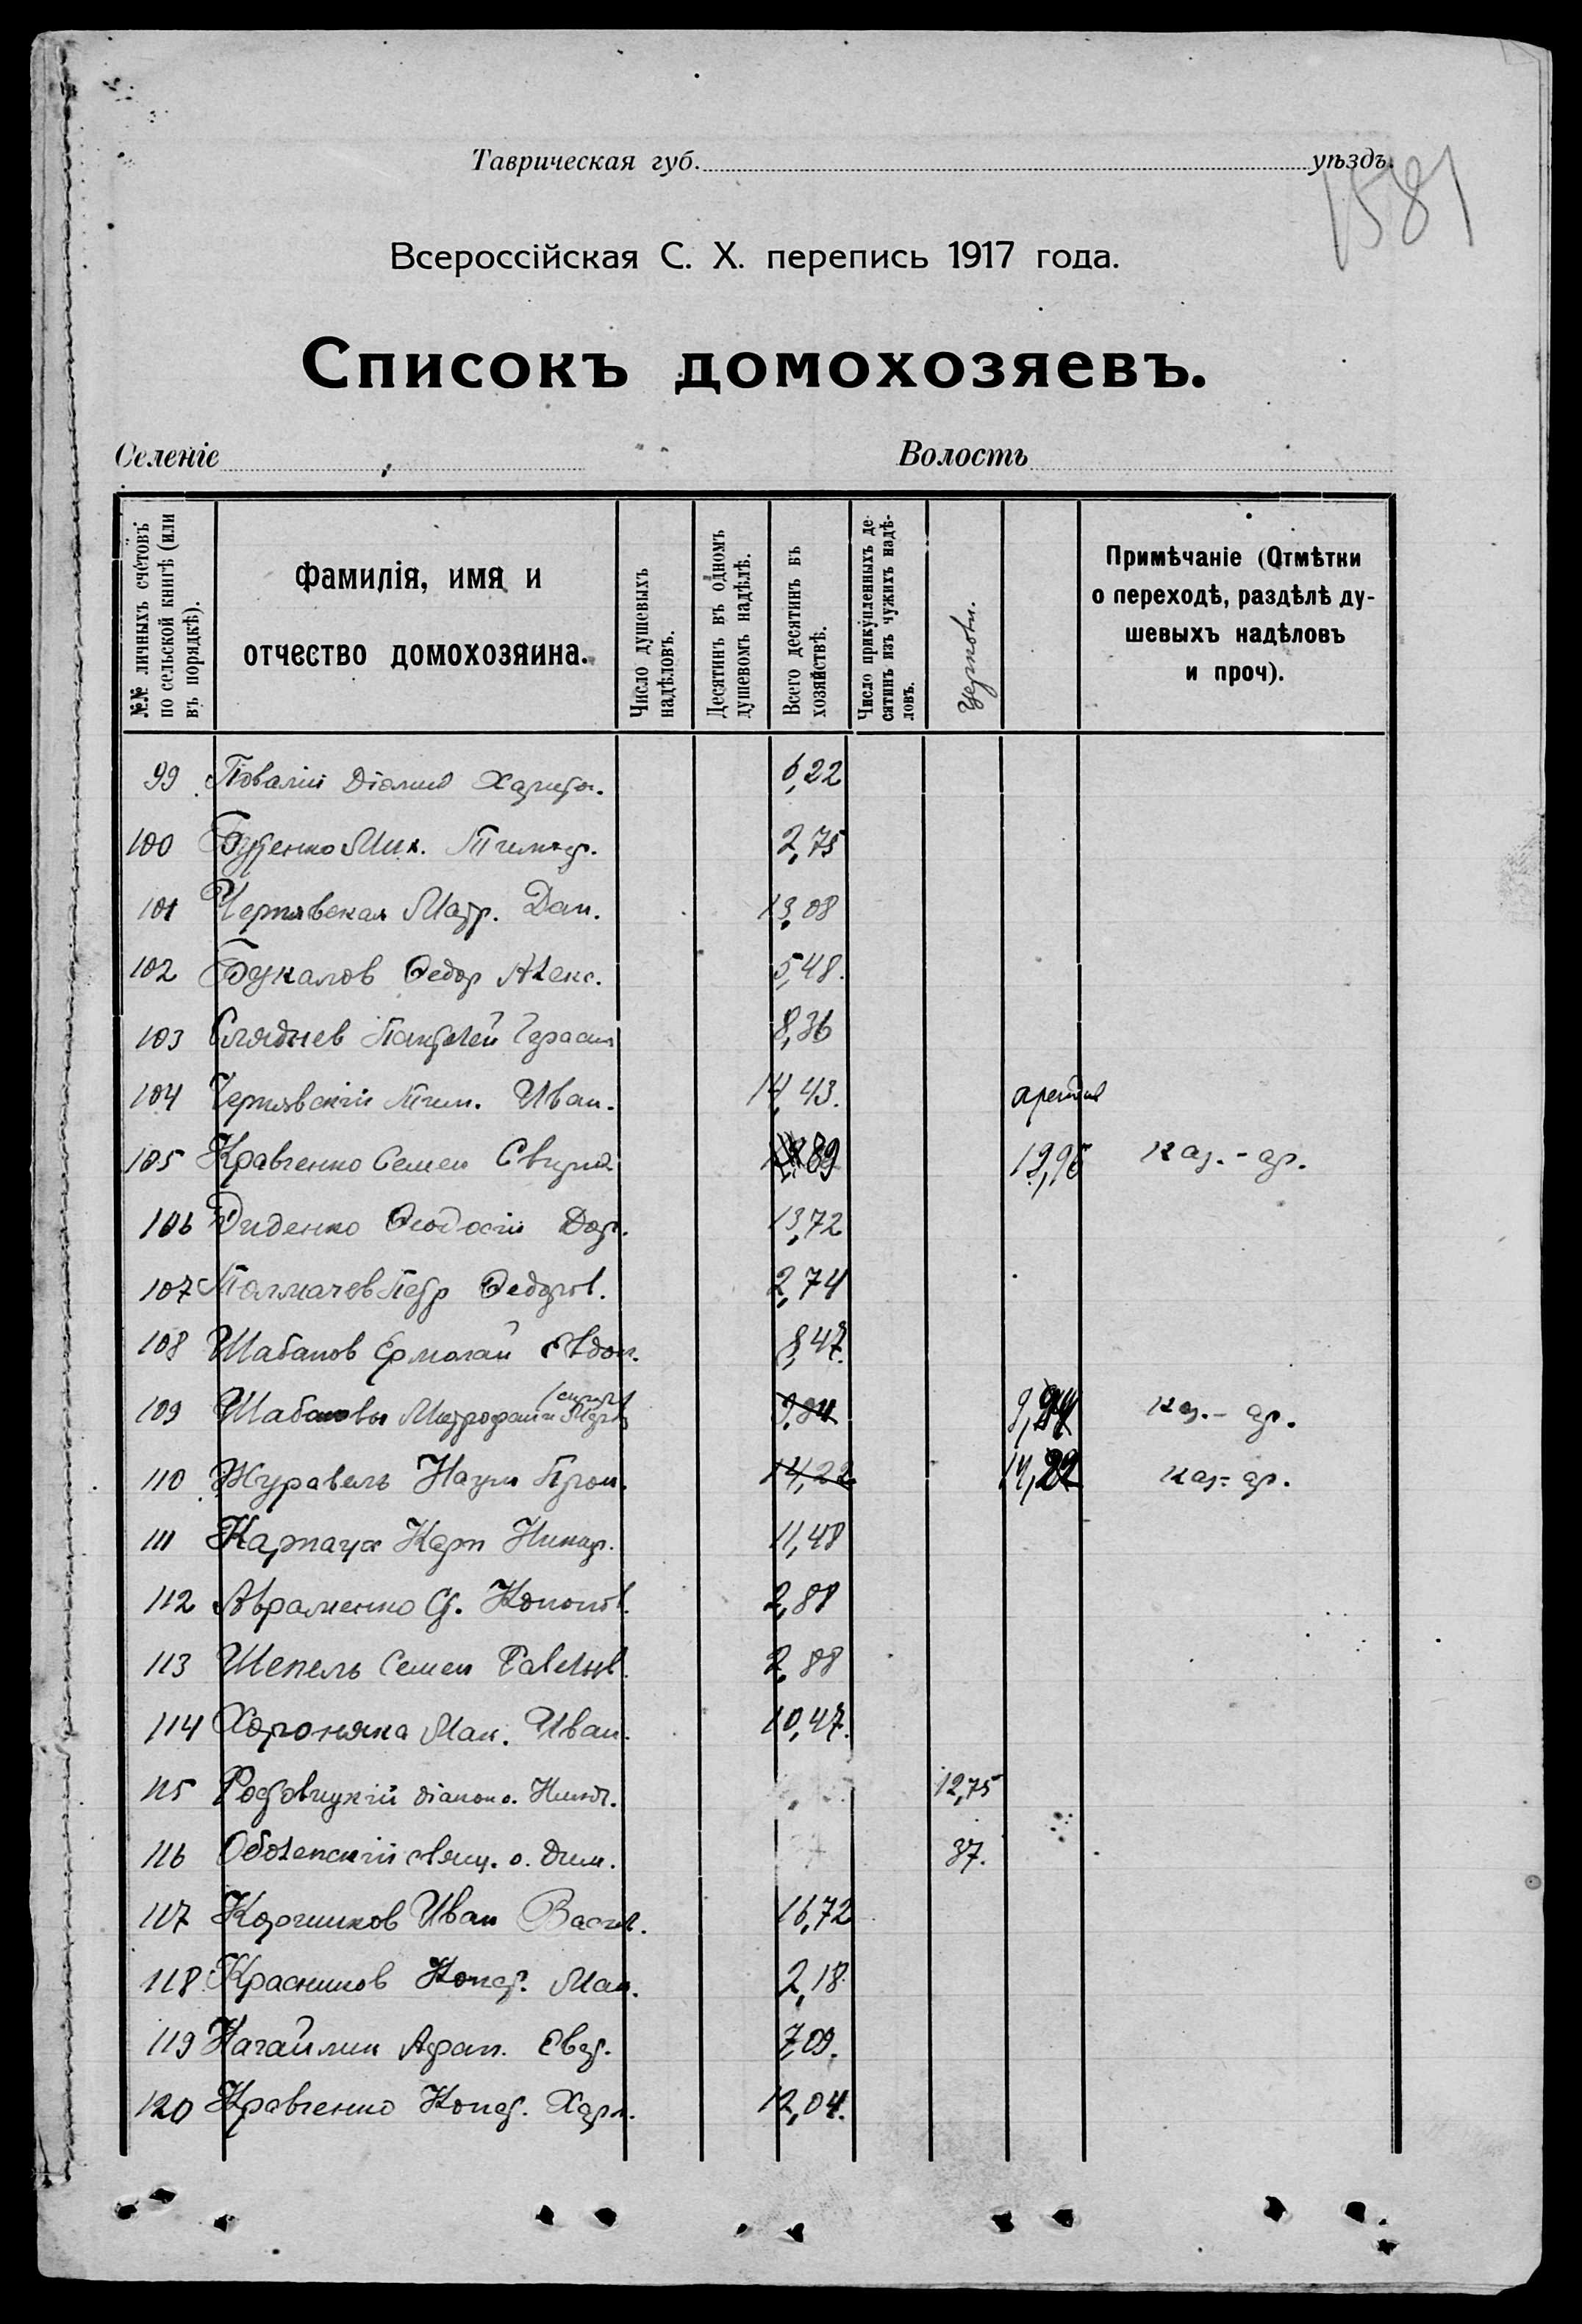 Таврическая губ. уѣздъ.
1581
Всероссійская С. Х. перепись 1917 года.
Списокъ домохозяевъ.
Селеніе Волость
№№ личныхъ счетовъ по сельской книгѣ (или въ порядкѣ).
Фамилія, имя и отчество домохозяина.
Число душевыхъ надѣловъ.
Десятинъ въ одномъ душевомъ надѣлѣ.
Всего десятинъ въ хозяйствѣ.
Число прикупленныхъ десятинъ изъ чужихъ надѣловъ.
Церковн.
Примѣчаніе (Отмѣтки о переходѣ, раздѣлѣ душевыхъ надѣловъ и проч).
99 Повалій Діомид Харит. 6,22
100 Буценко Мих. Тимоф. 2,75
101 Чернявская Матр. Дан. 13,08
102 Букалов Федор Алекс. 5,48.
103 Сляднев Пантелей Герасим 8,36
104 Чернявскій Тим. Иван. 14,43.
105 Кравченко Семен 89 19,96 каз.-ар.
106 Диденко Феодосій Дор. 13,72
107 Толмачев Петр Федоров. 2,74
108 Шабанов Ермолай Евдок. 8,47.
109 Шабановы Митрофан и 9,94 каз.-ар.
110 Журавель Наум Прок. 14,22 14,22 каз-ар.
111 Карпауx Карп Никиф. 11,48
112 Авраменко Ст. Кононов. 2,88
113 Шепель Семен Савельев. 2,88
114 Хороняка Мак. Иван. 10,47.
115 діакон о. 12,75
116 Оболенскій свящ. о. Дим. 37.
117 Корчинков Иван Васил. 16,72
118 Красников Конд. Мак. 2,18
119 Нагайлик Афан. Евд. 7,09.
120 Кравченко Конд. Харит. 12,04.